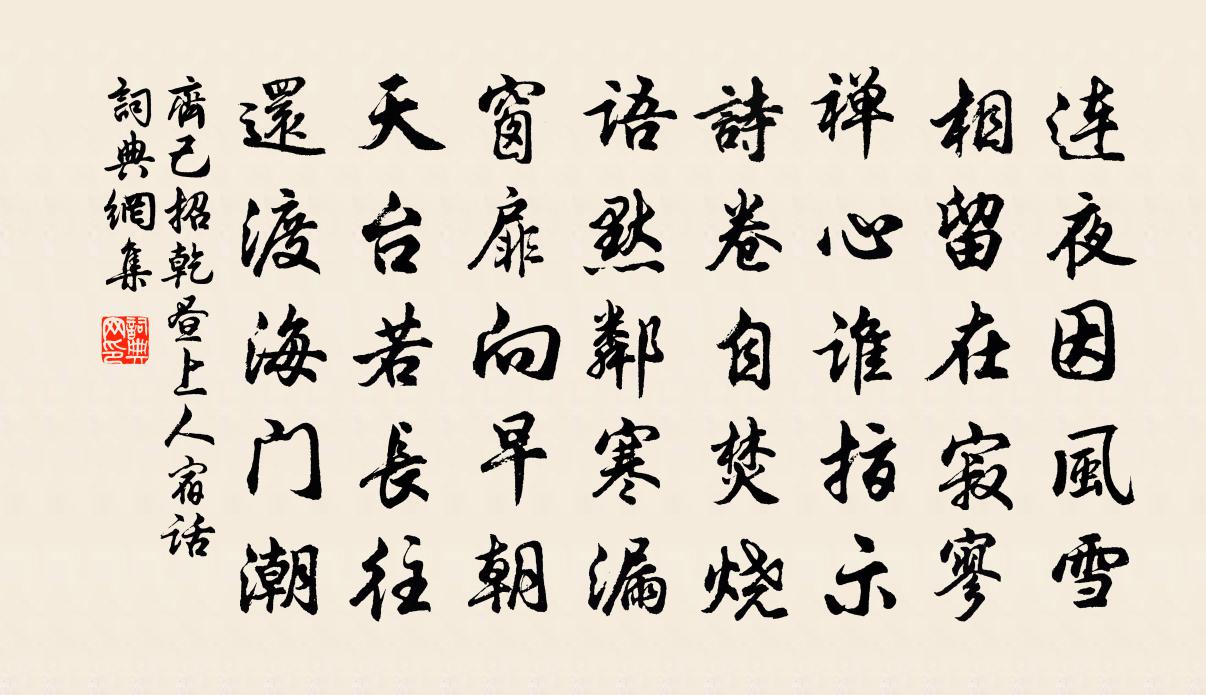 连夜因風雪
相留在寂寥
禅心谁指示
詩卷自焚烧
语默鄰寒漏
窗扉向早朝
天台若長往
還渡海门潮
齊己招乾昼上人宿话
詞典網集
詞典网印